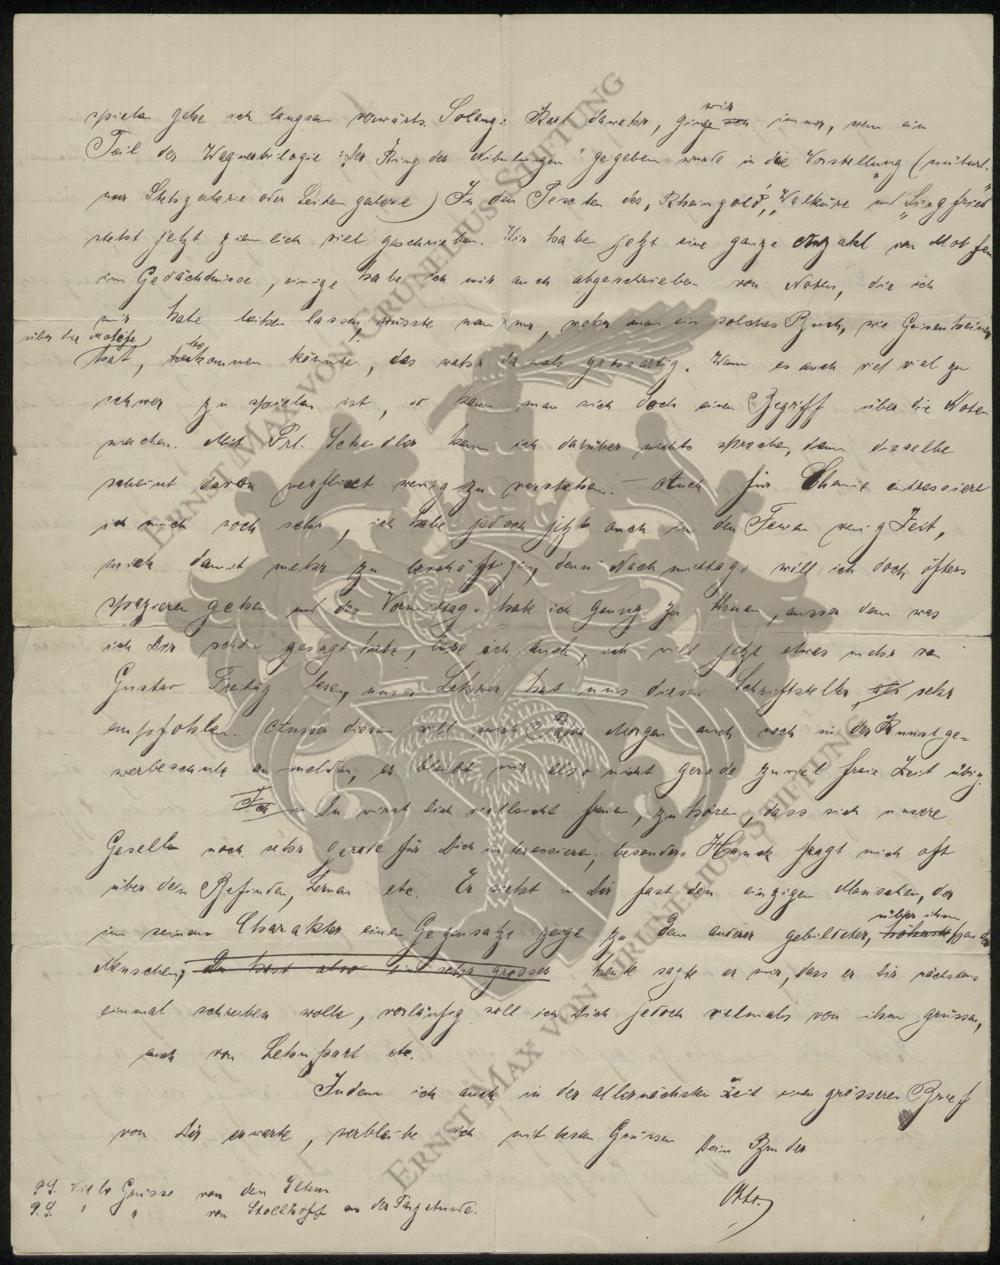 spielen gehe ich langsam vorwärts. Solange Karl da war, gingen wir immer, wenn ein
Teil der Wagnertrilogie „Der Ring der Nibelungen" gegeben wurde in die Vorstellung (natürl.
nur Stehgalerie oder Seitengalerie) In den Texten des „Rheingold", „Walküre und „Siegfried"
steht jetzt ziemlich viel geschrieben. Wir haben jetzt eine ganze Anzahl von Motiven
im Gedächtnisse, einige habe ich mir auch abgeschrieben von Noten, die ich
mir habe leihen lassen, wüsste man nur, woher man ein solches Buch, wie
über die Motive
hat, bekommen könnte, das wäre grossartig. Wenn es auch viel viel zu
schwer zu spielen ist, so kann man sich doch einen Begriff über die Noten
machen. Mit Frl. Schedler kann ich darüber nichts sprechen, denn dieselbe
scheint davon verflixt wenig zu verstehen. – Auch für Chemie interessiere
ich mich noch sehr, ich habe jedoch jetzt auch in den Ferien wenig Zeit,
mich damit mehr zu beschäftigen, denn Nachmittags will ich doch öfters
spazieren gehen und des Vormittags habe ich genug zu thuen, ausser dem was
ich Dir schon gesagt habe, lese ich auch, ich will jetzt etwas mehr von
Gustav Freitag lesen, unser Lehrer hat uns diesen Schriftsteller sehr
empfohlen. Ausser diesem will mich Papa Morgen auch noch in der Kunstge-
werbeschule anmelden, es bleibt mir also nicht gerade zuviel freie Zeit übrig.
Du wirst Dich vielleicht freuen, zu hören, dass sich unsere
Gesellen noch sehr gerade für Dich interessieren, besonders Hauck fragt mich oft
über dein Befinden, Lernen etc. Er sieht in Dir fast den einzigen Menschen, der
in seinem Charakter einen Gegensatz zeige zu dem anderer gebildeter, über ihm
Menschen, Du hast also ein sehr grosser heute sagte er mir, dass er Dir nächstens
einmal schreiben wolle, vorläufig soll ich Dich jedoch vielmals von ihm grüssen,
auch von etc.
Indem ich auch in der allernächsten Zeit einen grösseren Brief
von Dir erwarte, verbleibe ich mit besten Grüssen Dein Bruder
Otto.
P.S. Viele Grüsse von den Eltern
P.S. " " von Stollhoff
ERNST MAX VON GRUNELIUS STIFTUNG
ERNST MAX VON GRUNELIUS STIFTUNG